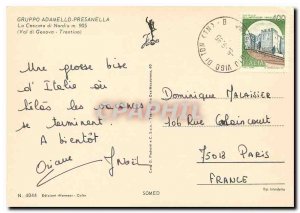 GRUPPO ADAMELLO-PRESANELLA
La Cascata di Nardis m. 905
(Val di Genova - Trentino)
Une grosse bise
d'Italie où
hélas les vacances
se terminent.
A bientôt
Oriane Noël
N. 4044 Edizioni
SOMED
400
ITALIA
Dominique MALAISIER
106 Rue Caulaincourt
75018 PARIS
FRANCE